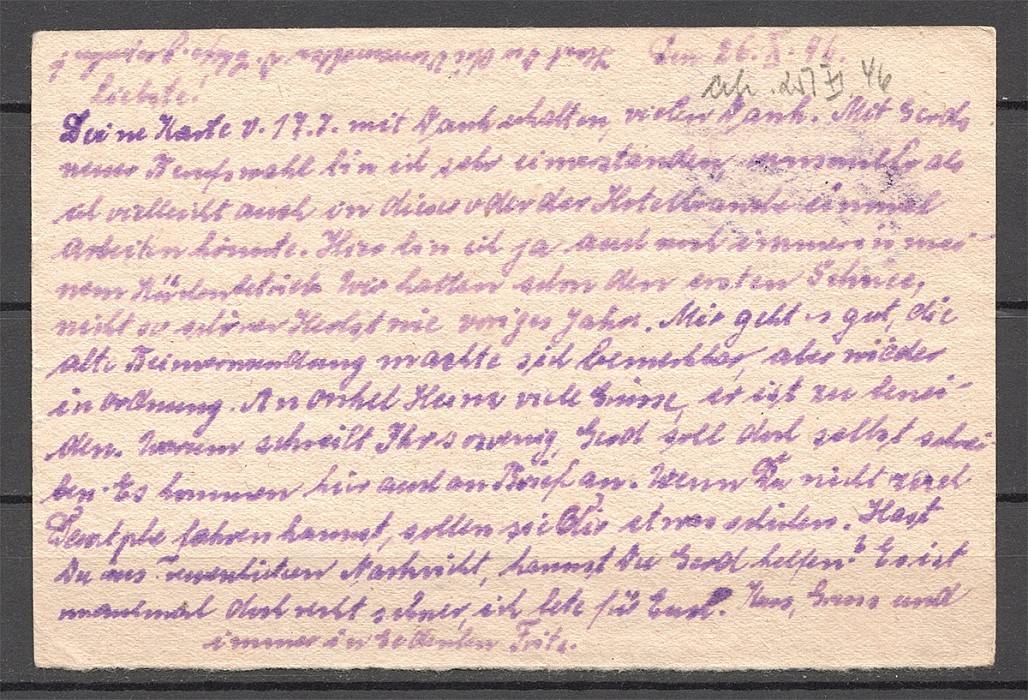 Den 26. X. 46.
Liebste!
Deine Karte v. 17.7. mit Dank erhalten, vielen Dank. Mit Gerds
neuer Berufswahl bin ich sehr einverstanden, umsomehr als
ich vielleicht auch in dieser oder der Hotelbranche einmal
arbeiten könnte. Hier bin ich ja auch noch immer in mei
nem Küchenbetrieb. Wir hatten schon den ersten Schnee,
nicht so schöner Herbst wie voriges Jahr. Mir geht es gut, die
alte Beinverwundung machte sich bemerkbar, aber wieder
in Ordnung. An Onkel viele Grüsse, er ist zu benei-
den. Warum schreibt Ihr so wenig, Gerd soll doch selbst schrei-
ben. Es kommen hier auch an. Wenn Du nicht nach
fahren kannst, sollen sie Dir etwas schicken. Hast
Du aus Nachricht, kannst Du Gerd helfen? Es ist
manchmal doch recht schwer, ich bete für Euch. Kuss, Gruss und
immer in Gedenken Fritz.